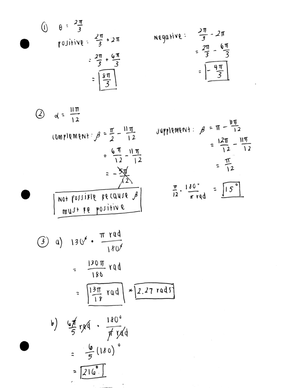 ① θ = 2π/3
positive: 2π/3 + 2π
= 2π/3 + 6π/3
= 8π/3
negative: 2π/3 - 2π
= 2π/3 - 6π/3
= - 4π/3
② α = 11π/12
complement: β = π/2 - 11π/12
= 6π/12 - 11π/12
= - 5π/12
not possible because β
must be positive
supplement: β = π - 11π/12
= 12π/12 - 11π/12
= π/12
π/12 · 180°/π rad = 15°
③ a) 130° · π rad/180°
= 130π/180 rad
= 13π/18 rad ≈ 2.27 rads
b) 6π/5 rad · 180°/π rad
= 6/5 (180)°
= 216°